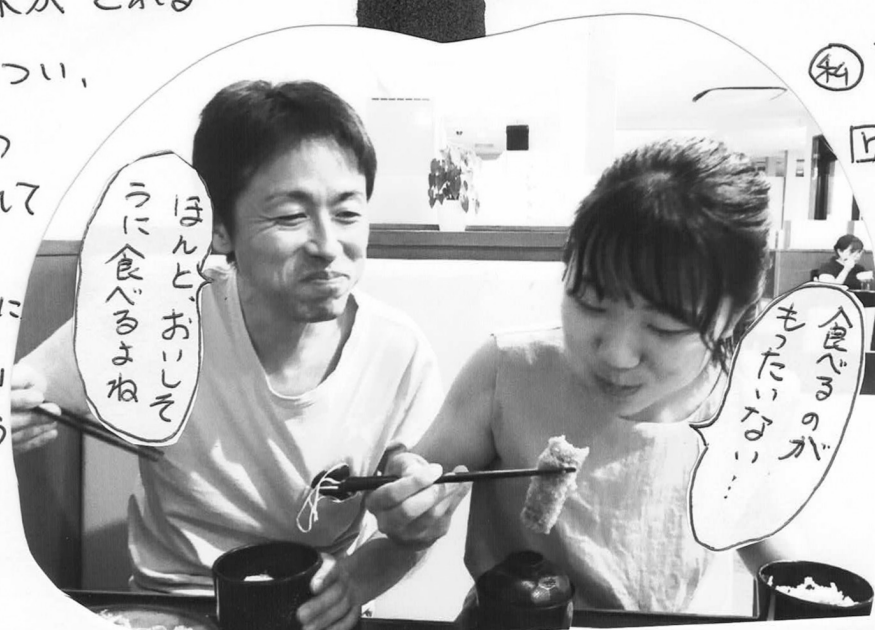 つい、
って
に
ほんと、おいしそ
うに食べるよね
食べるのが
もったいない…
私